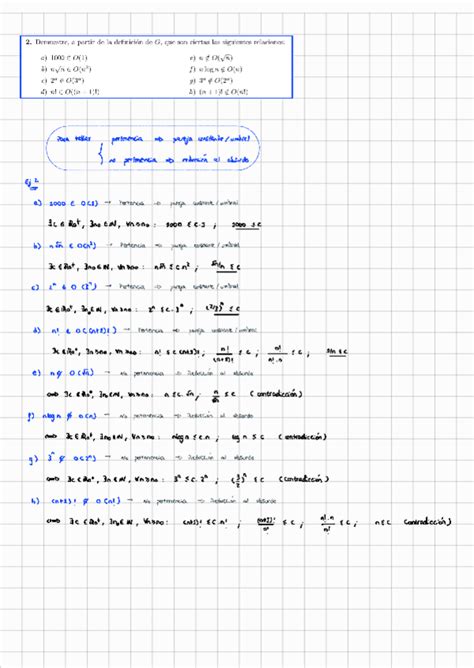 2. Demuestre, a partir de la definición de O, que son ciertas las siguientes relaciones:
a) 1000 ∈ O(1)
e) n ∉ O(√n)
b) n√n ∈ O(n²)
f) n log n ∉ O(n)
c) 2ⁿ ∈ O(3ⁿ)
g) 3ⁿ ∉ O(2ⁿ)
d) n! ∈ O((n+1)!)
h) (n+1)! ∉ O(n!)
Para pertenencia ⇒ pareja constante/umbral
no pertenencia ⇒ reducción al absurdo
Ej 2
a) 1000 ∈ O(1) → Pertenencia → pareja constante/umbral
∃c ∈ R₀⁺, ∃n₀ ∈ N, ∀n≥n₀ : 1000 ≤ c·1 ; 1000 ≤ c
b) n√n ∈ O(n²) → Pertenencia → pareja constante/umbral
∃c ∈ R₀⁺, ∃n₀ ∈ N, ∀n≥n₀ : n√n ≤ c n² ; √n/n ≤ c
c) 2ⁿ ∈ O(3ⁿ) → Pertenencia → pareja constante/umbral
∃c ∈ R₀⁺, ∃n₀ ∈ N, ∀n≥n₀ : 2ⁿ ≤ c·3ⁿ ; (2/3)ⁿ ≤ c
d) n! ∈ O((n+1)!) → Pertenencia → pareja constante/umbral
∀n≥n₀ : n! ≤ c(n+1)! ; n!/(n+1)! ≤ c ; ≤ c ; ≤ c
e) n ∉ O(√n) → no pertenencia → Reducción al absurdo
∃c ∈ R₀⁺, ∃n₀ ∈ N, ∀n≥n₀ : n ≤ c·√n ; n/√n ≤ c (contradicción)
f) n log n ∉ O(n) → no pertenencia → Reducción al absurdo
∃c ∈ R₀⁺, ∃n₀ ∈ N, ∀n≥n₀ : n log n ≤ c·n ; log n ≤ c (contradicción)
g) 3ⁿ ∉ O(2ⁿ) → no pertenencia → Reducción al absurdo
∃c ∈ R₀⁺, ∃n₀ ∈ N, ∀n≥n₀ : 3ⁿ ≤ c·2ⁿ ; (3/2)ⁿ ≤ c (contradicción)
h) (n+1)! ∉ O(n!) → no pertenencia → Reducción al absurdo
∃c ∈ R₀⁺, ∃n₀ ∈ N, ∀n≥n₀ : (n+1)! ≤ c n! ; (n+1)!/n! ≤ c ; n!·n/n! ≤ c ; n ≤ c (contradicción)